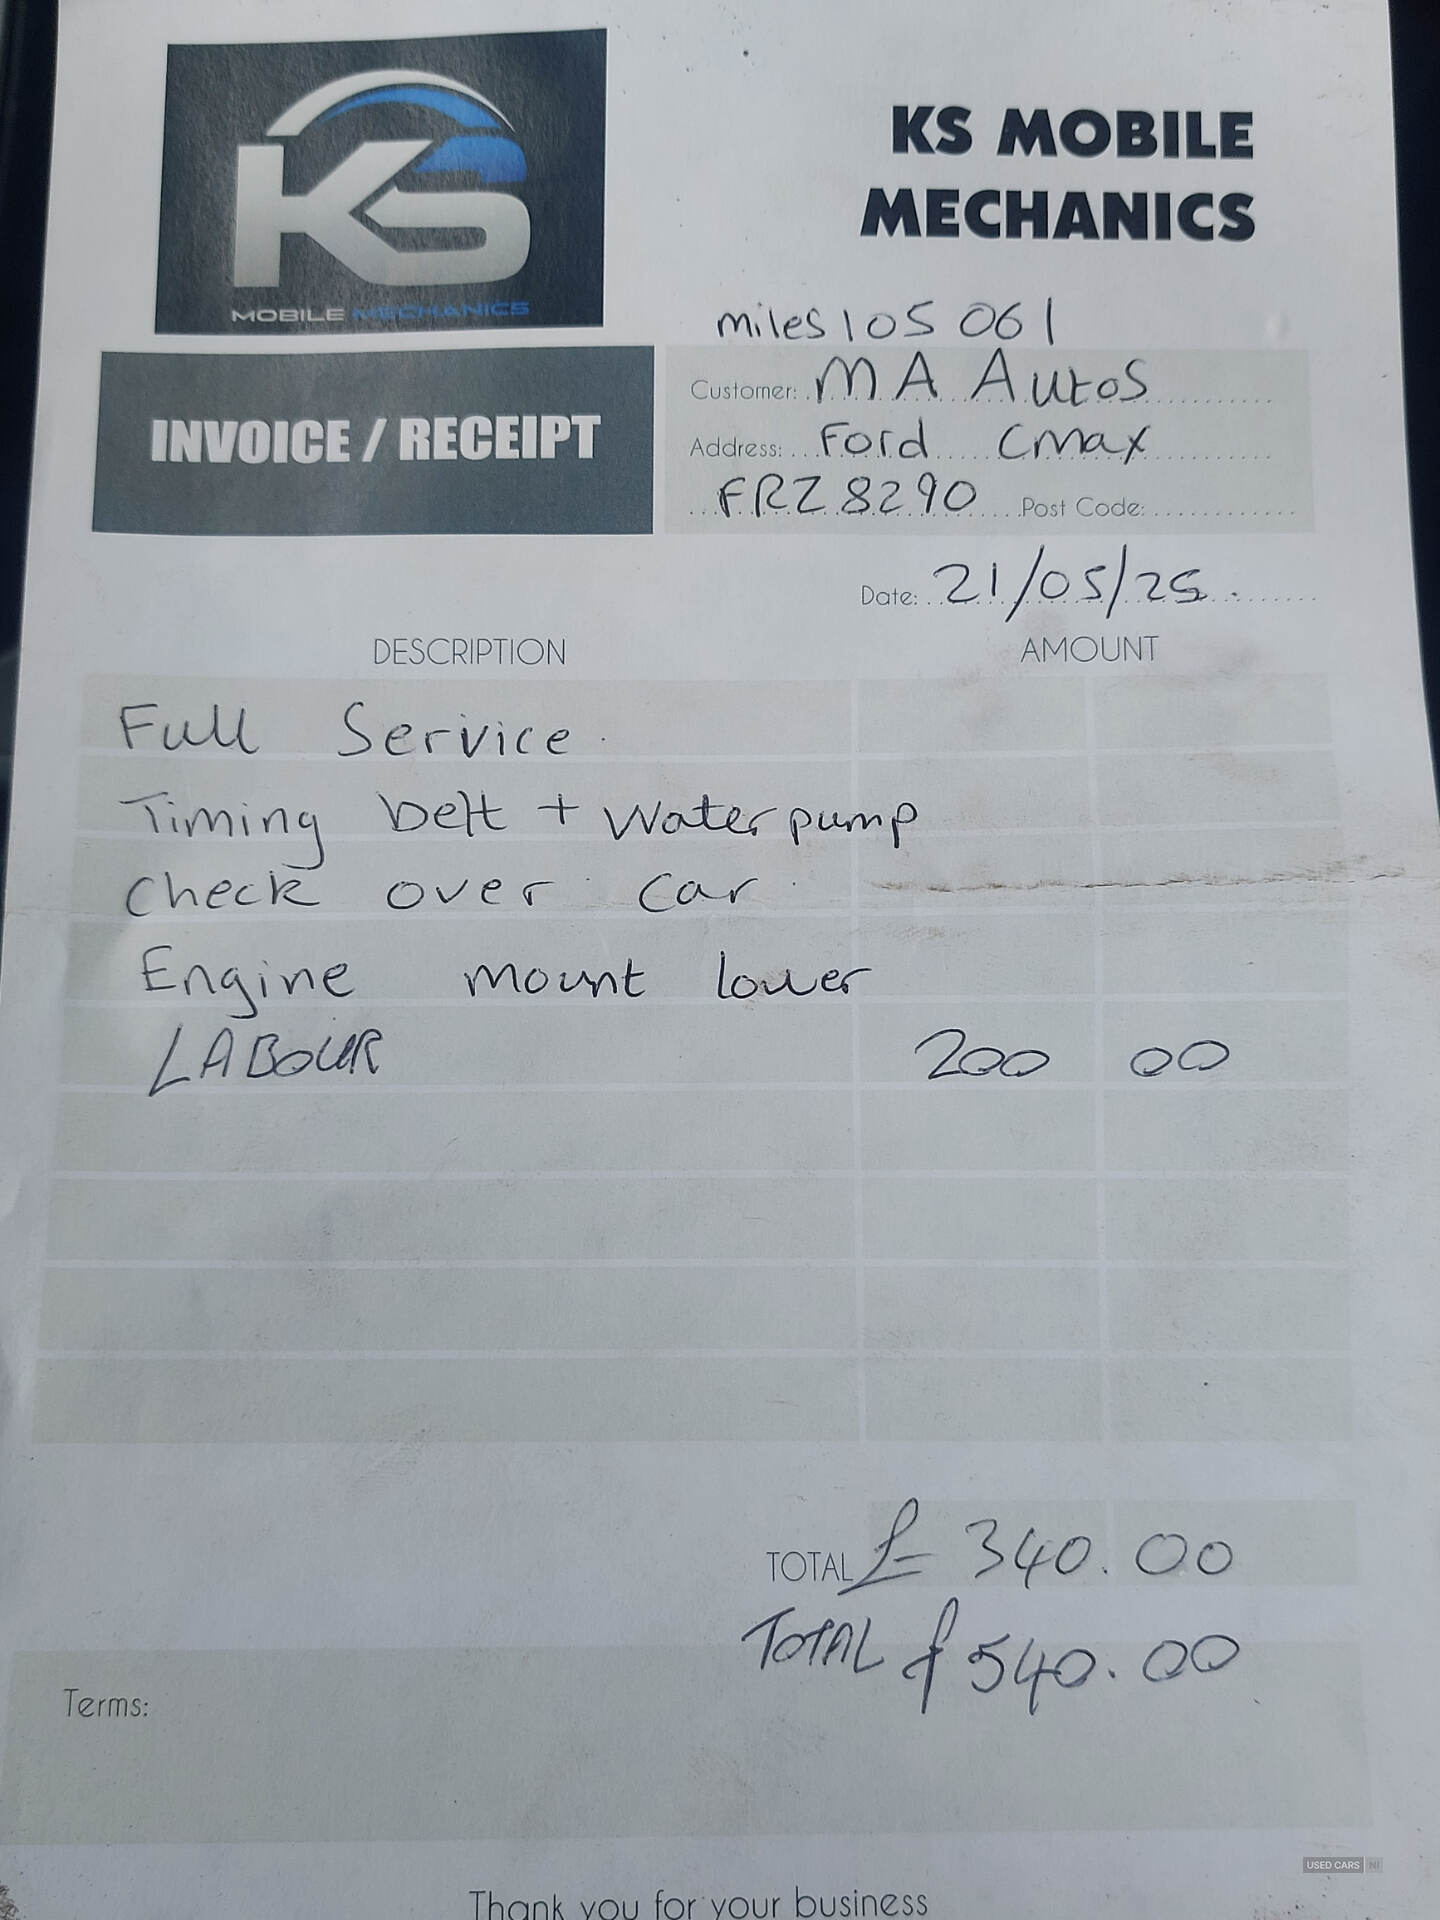 KS
MOBILE MECHANICS
KS MOBILE
MECHANICS
miles 105 061
INVOICE / RECEIPT
Customer: MA Autos
Address: Ford Cmax
FRZ 8290 Post Code:
Date: 21/05/25.
DESCRIPTION AMOUNT
Full Service.
Timing belt + Waterpump
Check over car.
Engine mount lower
LABOUR 200 00
TOTAL £ 340.00
TOTAL £540.00
Terms:
Thank you for your business
USED CARS NI